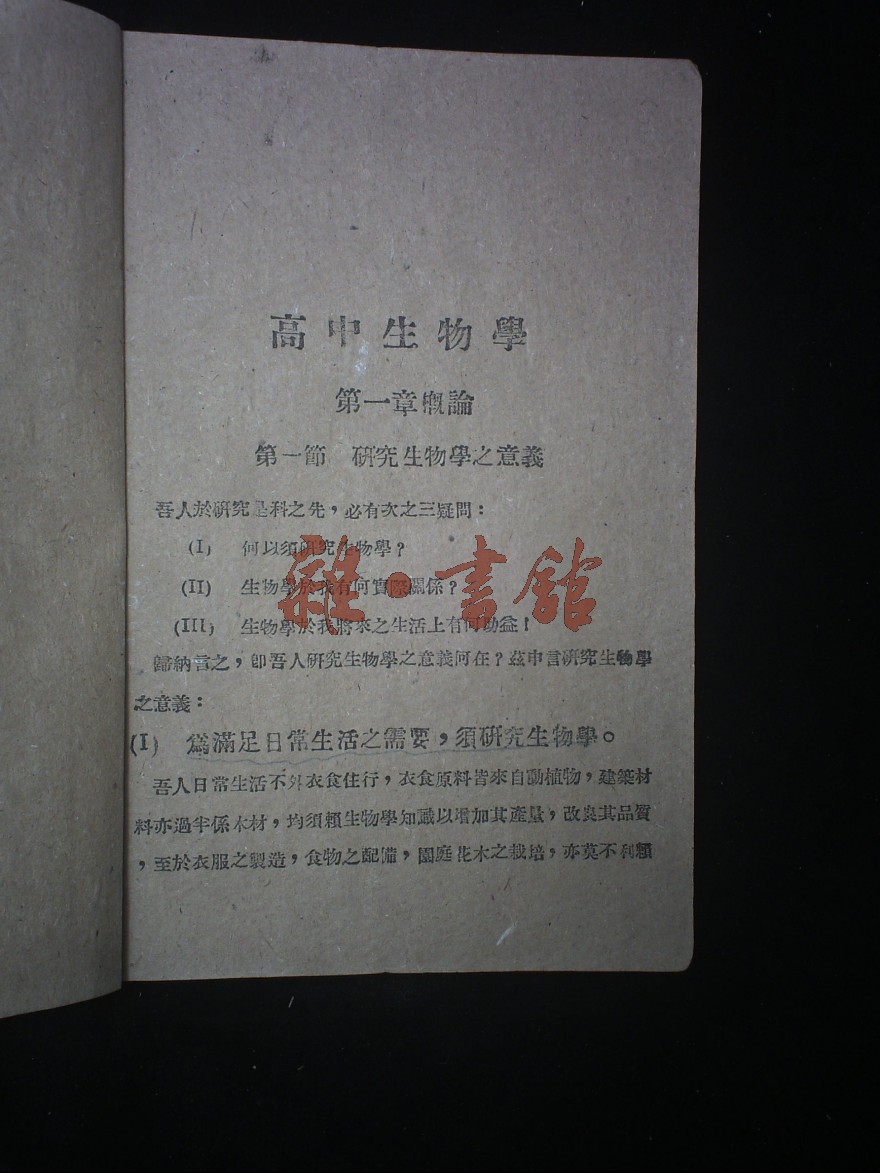 高中生物學
第一章概論
第一節　研究生物學之意義
吾人於研究是科之先，必有次之三疑問：
(I)　何以須研究生物學？
(II)　生物學於我有何實際關係？
(III)　生物學於我將來之生活上有何助益！
歸納言之，卽吾人研究生物學之意義何在？茲申言研究生物學
之意義：
(I)　爲滿足日常生活之需要，須研究生物學。
吾人日常生活不外衣食住行，衣食原料皆來自動植物，建築材
料亦過半係木材，均須賴生物學知識以增加其產量，改良其品質
，至於衣服之製造，食物之配備，園庭花木之栽培，亦莫不利賴
雜·書館